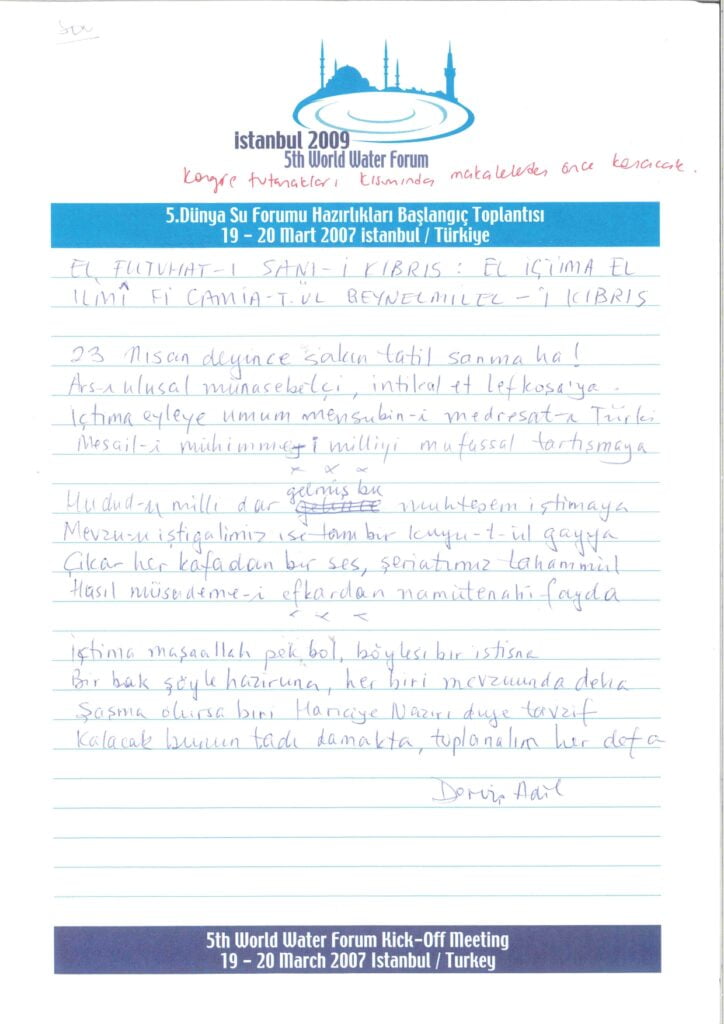 istanbul 2009
5th World Water Forum
Kongre tutanakları kısmında makalelerden önce basılacak.
5.Dünya Su Forumu Hazırlıkları Başlangıç Toplantısı
19 - 20 Mart 2007 istanbul / Türkiye
EL FUTUHAT-I SANİ-İ KIBRIS : EL İÇTİMA EL
İLMÎ Fİ CAMİA-T-ÜL BEYNELMİLEL-İ KIBRIS
23 Nisan deyince sakın tatil sanma ha!
Ars-ı ulusal münasebetçi, intikal et Lefkoşa'ya.
İçtima eyleye umum mensubin-i medresat-ı Türki
Mesail-i mühimme-i milliyi mufassal tartışmaya
x x x
Hudud-u milli dar gelmiş bu muhteşem içtimaya
Mevzu-u iştigalimiz ise tam bir kuyu-t-ül gayya
Çıkar her kafadan bir ses, şeriatımız tahammül
Hasıl müsademe-i efkardan namütenahi fayda
x x x
İçtima maşaallah pek bol, böylesi bir istisna
Bir bak şöyle haziruna, her biri mevzuunda deha
Şaşma olursa biri Hariciye Nazırı diye tavzif
Kalacak bunun tadı damakta, toplanalım her defa
Derviş Adil
5th World Water Forum Kick-Off Meeting
19 - 20 March 2007 Istanbul / Turkey